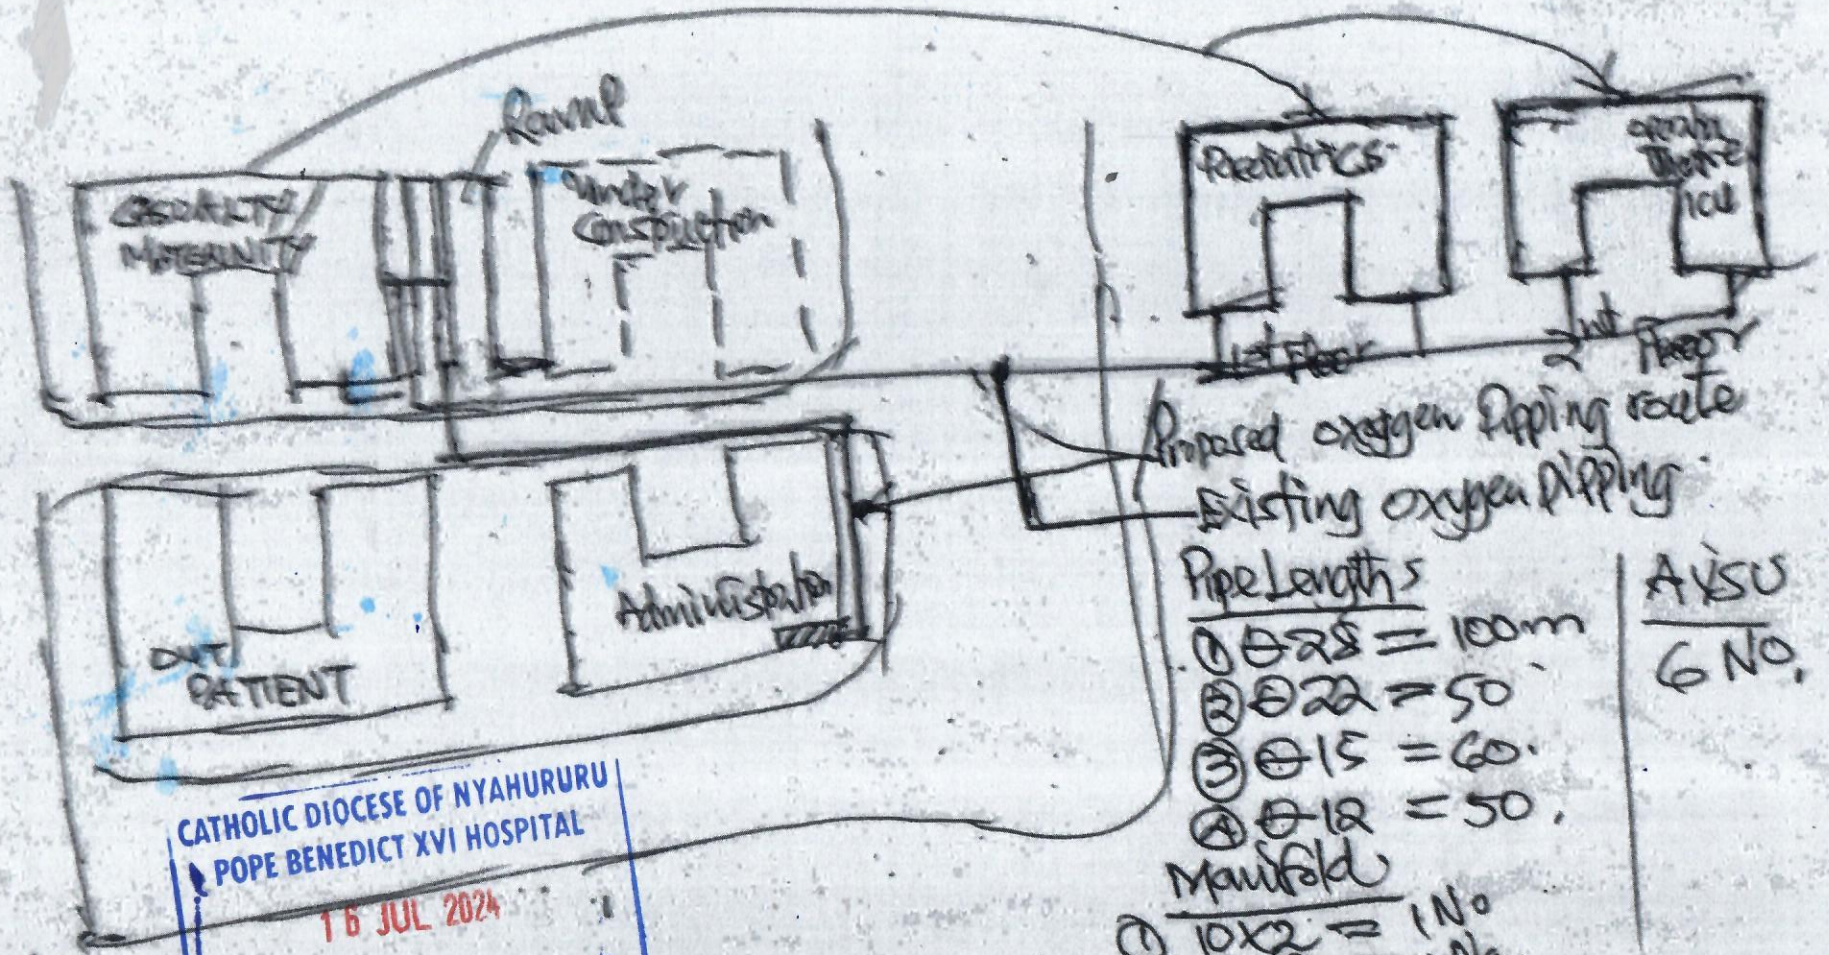 Ramp
CASUALTY/
MATERNITY
Under
Construction
Paediatrics
Theatre
ICU
1st Floor
2nd Floor
Proposed oxygen Pipping route
Existing oxygen Pipping
OUT
PATIENT
Administration
Pipe Lengths
① Θ 28 = 100m
② Θ 22 = 50
③ Θ 15 = 60.
④ Θ 12 = 50.
AVSU
6 NO.
Manifold
① 10X2 = 1 No
CATHOLIC DIOCESE OF NYAHURURU
POPE BENEDICT XVI HOSPITAL
16 JUL 2024